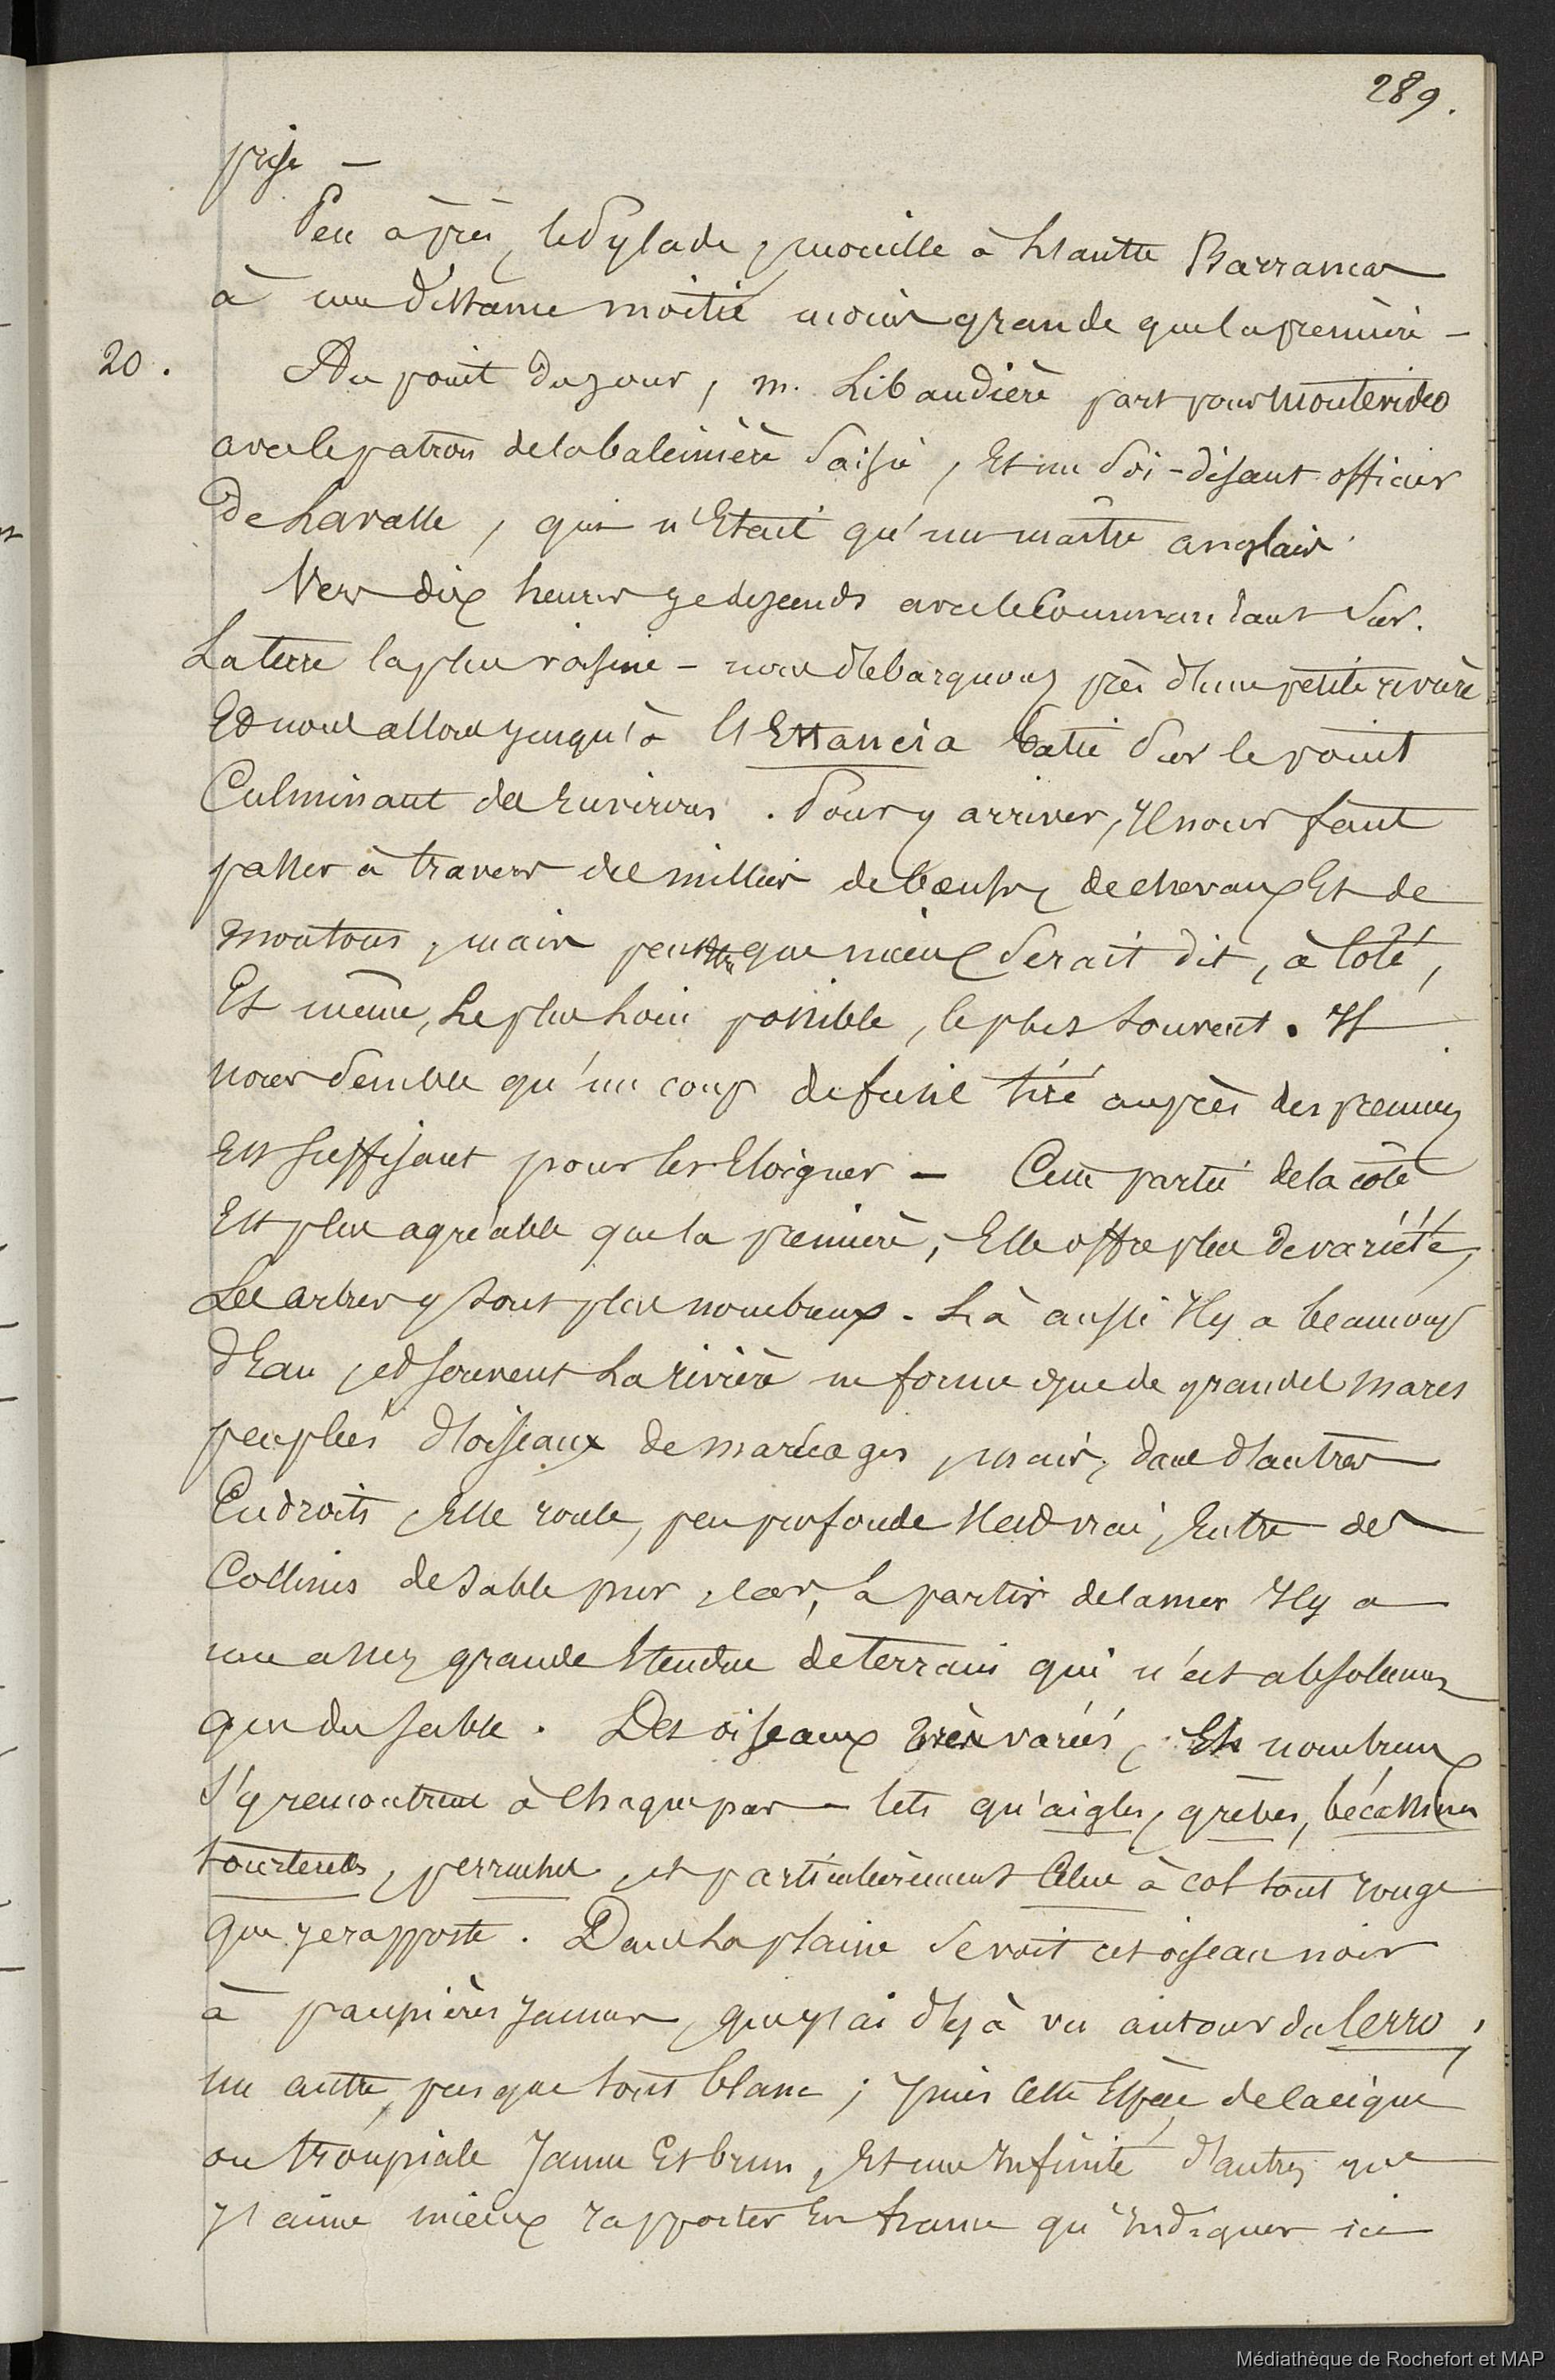 289.
prise —
Peu après, le Pylade, mouille à l'autre Barrancas
à une distance moitié moins grande que la première —
20. Au point du jour, m. Libaudière part pour Montevideo
avec le patron de la baleinière saisie, et un soi-disant officier
de Lavalle, qui n'était qu'un maître anglais.
Vers dix heures je descends avec le Commandant sur
la terre la plus voisine — nous débarquons près d'une petite rivière
Et nous allons jusqu'à l'Estancia batie sur le point
Culminant des Environs. Pour y arriver, il nous faut
passer à travers des milliers de bœufs, de chevaux et de
moutons, mais peut être que mieux serait dit, à côté,
Et même, le plus loin possible, le plus souvent. Il
nous semble qu'un coup de fusil tiré auprès des premiers
est suffisant pour les éloigner — Cette partie de la côte
Est plus agréable que la première, Elle offre plus de variété,
Les arbres y sont plus nombreux. Là aussi il y a beaucoup
d'Eau, et souvent la rivière ne forme que de grandes mares
peuplées d'oiseaux de marécages, mais, dans d'autres
Endroits, Elle roule, peu profonde il est vrai, Entre des
Collines de sable pur, car, à partir de la mer il y a
une assez grande étendue de terrain qui n'est absolument
que du sable. Des oiseaux très variés, Et nombreux
s'y rencontrent à chaque pas — tels qu'aigles, grèbes, bécassines
tourterelles, perruches, et particulièrement Celui à col tout rouge
que je rapporte. Dans la plaine se voit cet oiseau noir
à paupières jaunes, que j'ai déjà vu autour du Cerro,
un autre, presque tout blanc; puis cette Espèce de cacique
ou troupiale jaune Et brun, et une infinité d'autres que
j'aime mieux rapporter En France qu'indiquer ici
Médiathèque de Rochefort et MAP